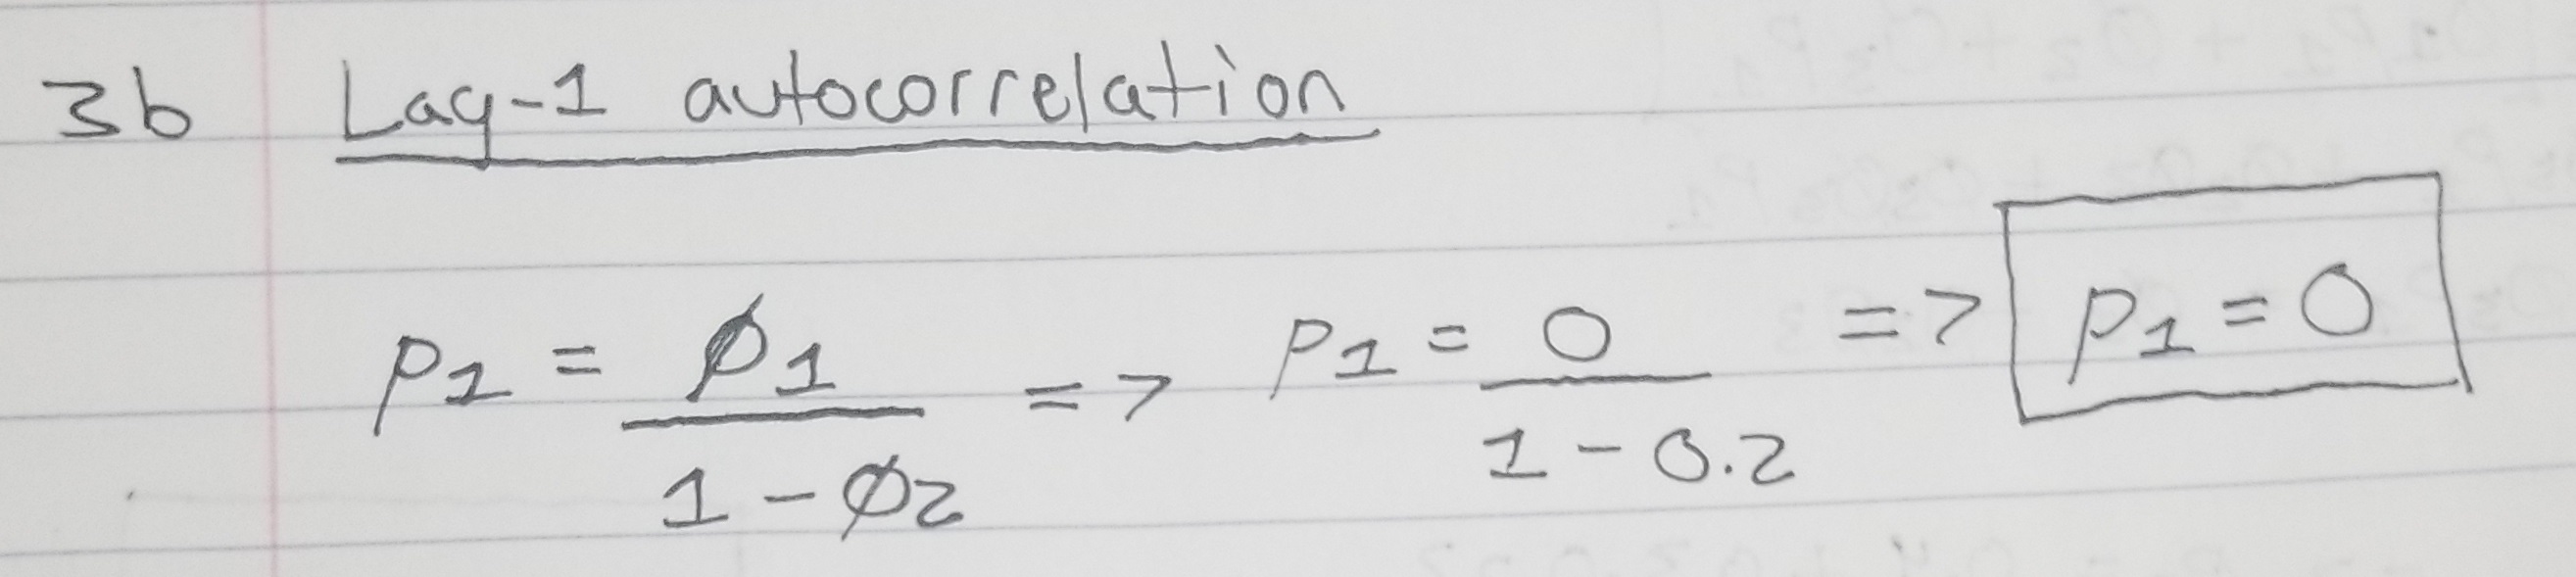 3b Lag-1 autocorrelation
p1 = ϕ1 / 1 - ϕ2 => p1 = 0 / 1 - 0.2 => p1 = 0